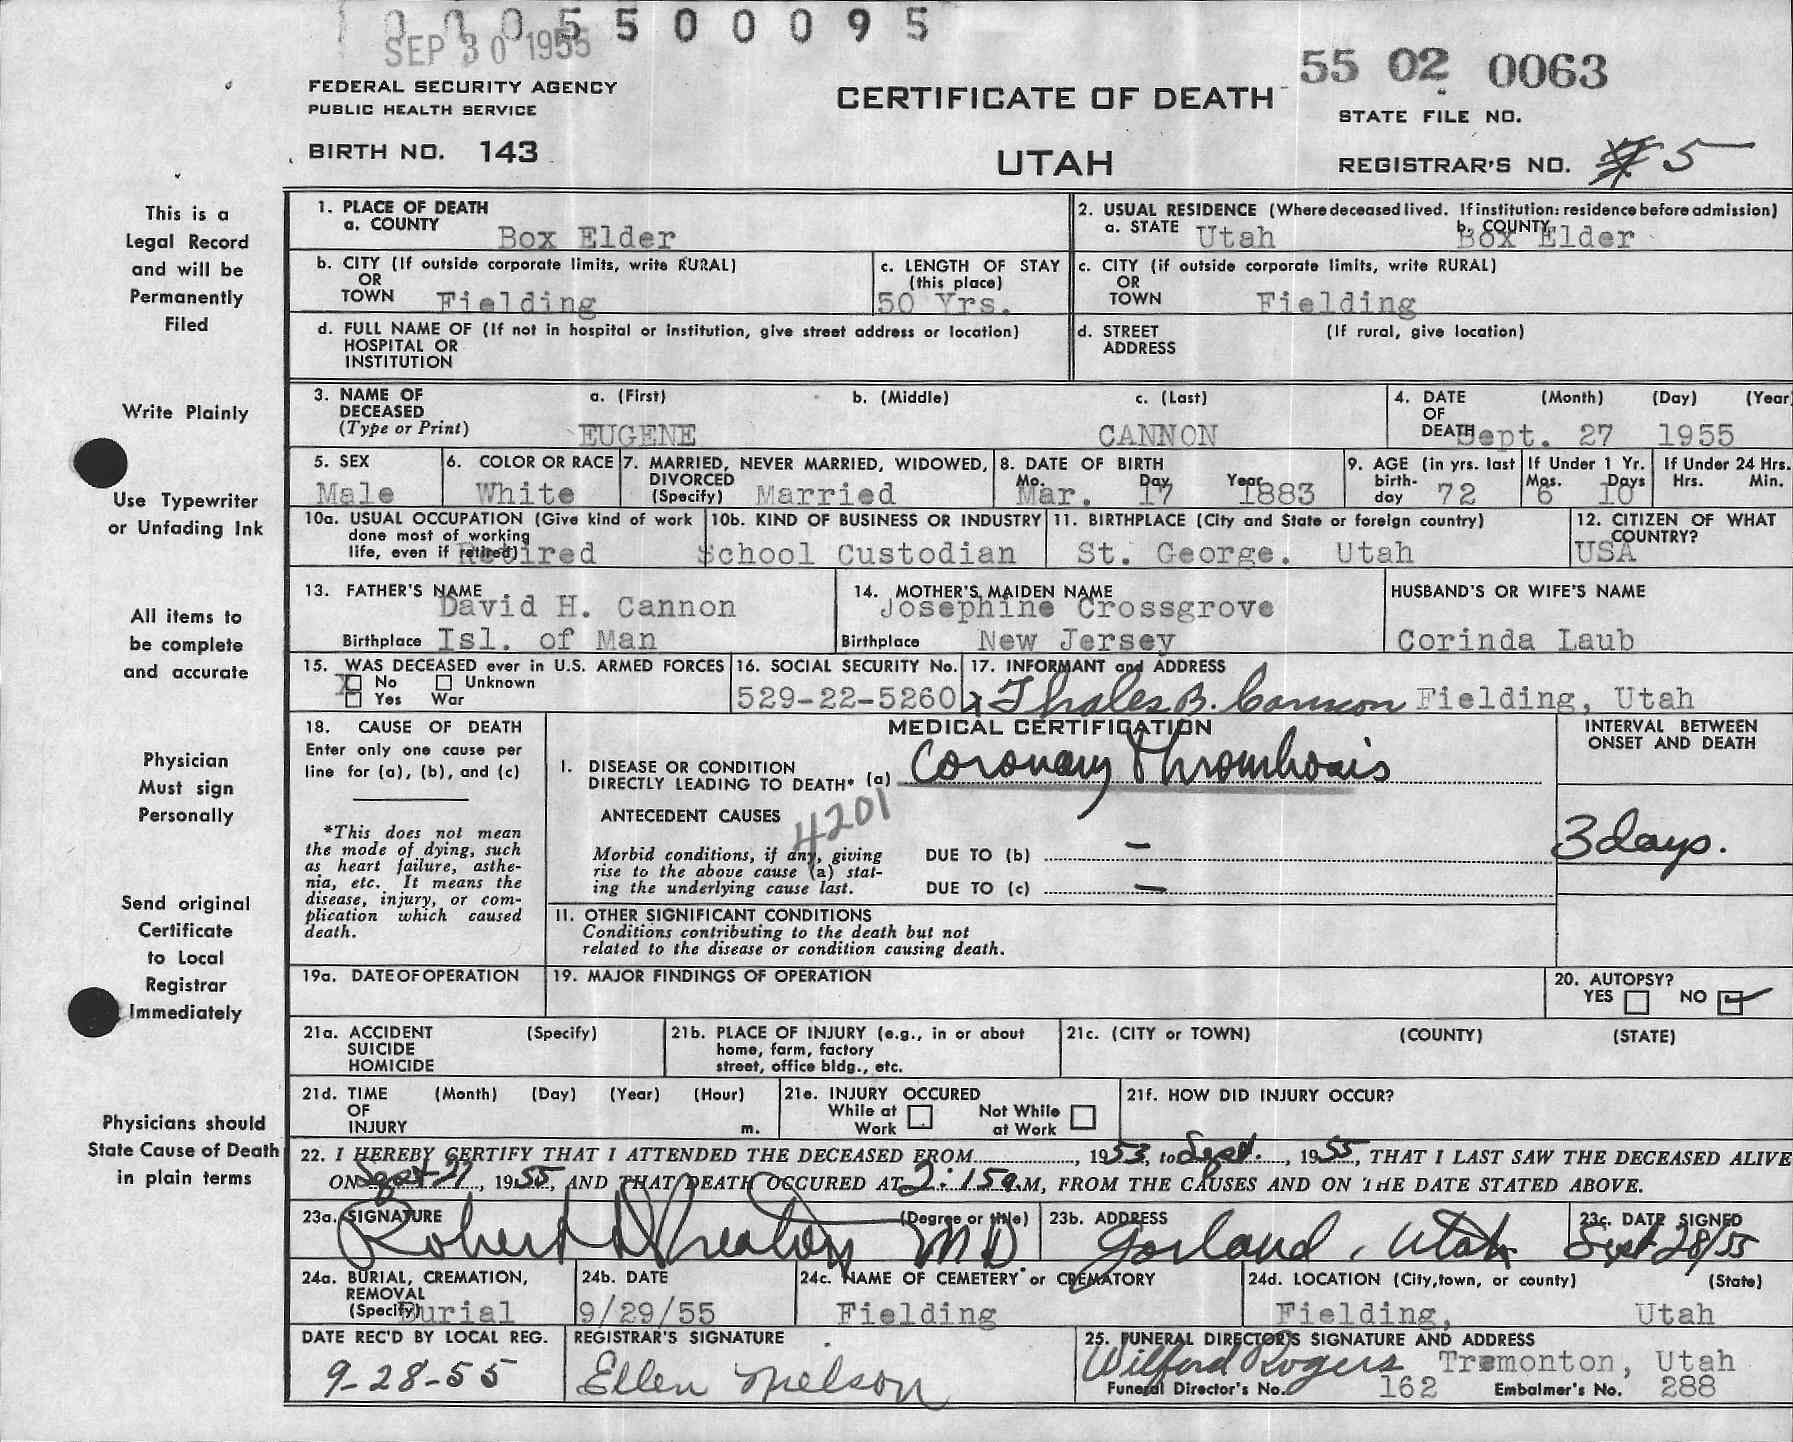 1 0 0 0 5 5 0 0 0 9 5
SEP 30 1955
FEDERAL SECURITY AGENCY
PUBLIC HEALTH SERVICE
BIRTH NO. 143
CERTIFICATE OF DEATH
UTAH
55 02 0063
STATE FILE NO.
REGISTRAR'S NO. # 5
This is a
Legal Record
and will be
Permanently
Filed
Write Plainly
Use Typewriter
or Unfading Ink
All items to
be complete
and accurate
Physician
Must sign
Personally
Send original
Certificate
to Local
Registrar
Immediately
Physicians should
State Cause of Death
in plain terms
1. PLACE OF DEATH
a. COUNTY Box Elder
2. USUAL RESIDENCE (Where deceased lived. If institution: residence before admission)
a. STATE Utah b. COUNTY Box Elder
b. CITY (If outside corporate limits, write RURAL)
OR
TOWN Fielding
c. LENGTH OF STAY
(this place)
50 Yrs.
c. CITY (if outside corporate limits, write RURAL)
OR
TOWN Fielding
d. FULL NAME OF (If not in hospital or institution, give street address or location)
HOSPITAL OR
INSTITUTION
d. STREET (If rural, give location)
ADDRESS
3. NAME OF a. (First) b. (Middle) c. (Last)
DECEASED
(Type or Print) EUGENE CANNON
4. DATE (Month) (Day) (Year
OF
DEATH Sept. 27 1955
5. SEX
Male
6. COLOR OR RACE
White
7. MARRIED, NEVER MARRIED, WIDOWED,
DIVORCED
(Specify) Married
8. DATE OF BIRTH
Mo. Day Year
Mar. 17 1883
9. AGE (in yrs. last
birth-
day 72
If Under 1 Yr.
Mos. Days
6 10
If Under 24 Hrs.
Hrs. Min.
10a. USUAL OCCUPATION (Give kind of work
done most of working
life, even if retired) Retired
10b. KIND OF BUSINESS OR INDUSTRY
School Custodian
11. BIRTHPLACE (City and State or foreign country)
St. George. Utah
12. CITIZEN OF WHAT
COUNTRY?
USA
13. FATHER'S NAME
David H. Cannon
Birthplace Isl. of Man
14. MOTHER'S MAIDEN NAME
Josephine Crossgrove
Birthplace New Jersey
HUSBAND'S OR WIFE'S NAME
Corinda Laub
15. WAS DECEASED ever in U.S. ARMED FORCES
X No Unknown
Yes War
16. SOCIAL SECURITY No.
529-22-5260
17. INFORMANT and ADDRESS
x Thales B. Cannon Fielding, Utah
18. CAUSE OF DEATH
Enter only one cause per
line for (a), (b), and (c)
*This does not mean
the mode of dying, such
as heart failure, asthe-
nia, etc. It means the
disease, injury, or com-
plication which caused
death.
MEDICAL CERTIFICATION
I. DISEASE OR CONDITION
DIRECTLY LEADING TO DEATH* (a) Coronary Thrombosis
ANTECEDENT CAUSES
4201
Morbid conditions, if any, giving
rise to the above cause (a) stat-
ing the underlying cause last.
DUE TO (b) –
DUE TO (c) –
INTERVAL BETWEEN
ONSET AND DEATH
3 days.
II. OTHER SIGNIFICANT CONDITIONS
Conditions contributing to the death but not
related to the disease or condition causing death.
19a. DATE OF OPERATION
19. MAJOR FINDINGS OF OPERATION
20. AUTOPSY?
YES NO ✓
21a. ACCIDENT (Specify)
SUICIDE
HOMICIDE
21b. PLACE OF INJURY (e.g., in or about
home, farm, factory
street, office bldg., etc.
21c. (CITY or TOWN) (COUNTY) (STATE)
21d. TIME (Month) (Day) (Year) (Hour)
OF
INJURY m.
21e. INJURY OCCURED
While at Work Not While at Work
21f. HOW DID INJURY OCCUR?
22. I HEREBY CERTIFY THAT I ATTENDED THE DECEASED FROM ........, 1953, to Sept. ...., 1955, THAT I LAST SAW THE DECEASED ALIVE
ON Sept 27, 1955, AND THAT DEATH OCCURED AT 2:15 a.M, FROM THE CAUSES AND ON THE DATE STATED ABOVE.
23a. SIGNATURE (Degree or title)
Robert MD
23b. ADDRESS
Garland, Utah
23c. DATE SIGNED
Sept 28/55
24a. BURIAL, CREMATION,
REMOVAL
(Specify) Burial
24b. DATE
9/29/55
24c. NAME OF CEMETERY or CREMATORY
Fielding
24d. LOCATION (City, town, or county) (State)
Fielding, Utah
DATE REC'D BY LOCAL REG.
9-28-55
REGISTRAR'S SIGNATURE
Ellen Nielson
25. FUNERAL DIRECTOR'S SIGNATURE AND ADDRESS
Wilford Rogers Tremonton, Utah
Funeral Director's No. 162 Embalmer's No. 288